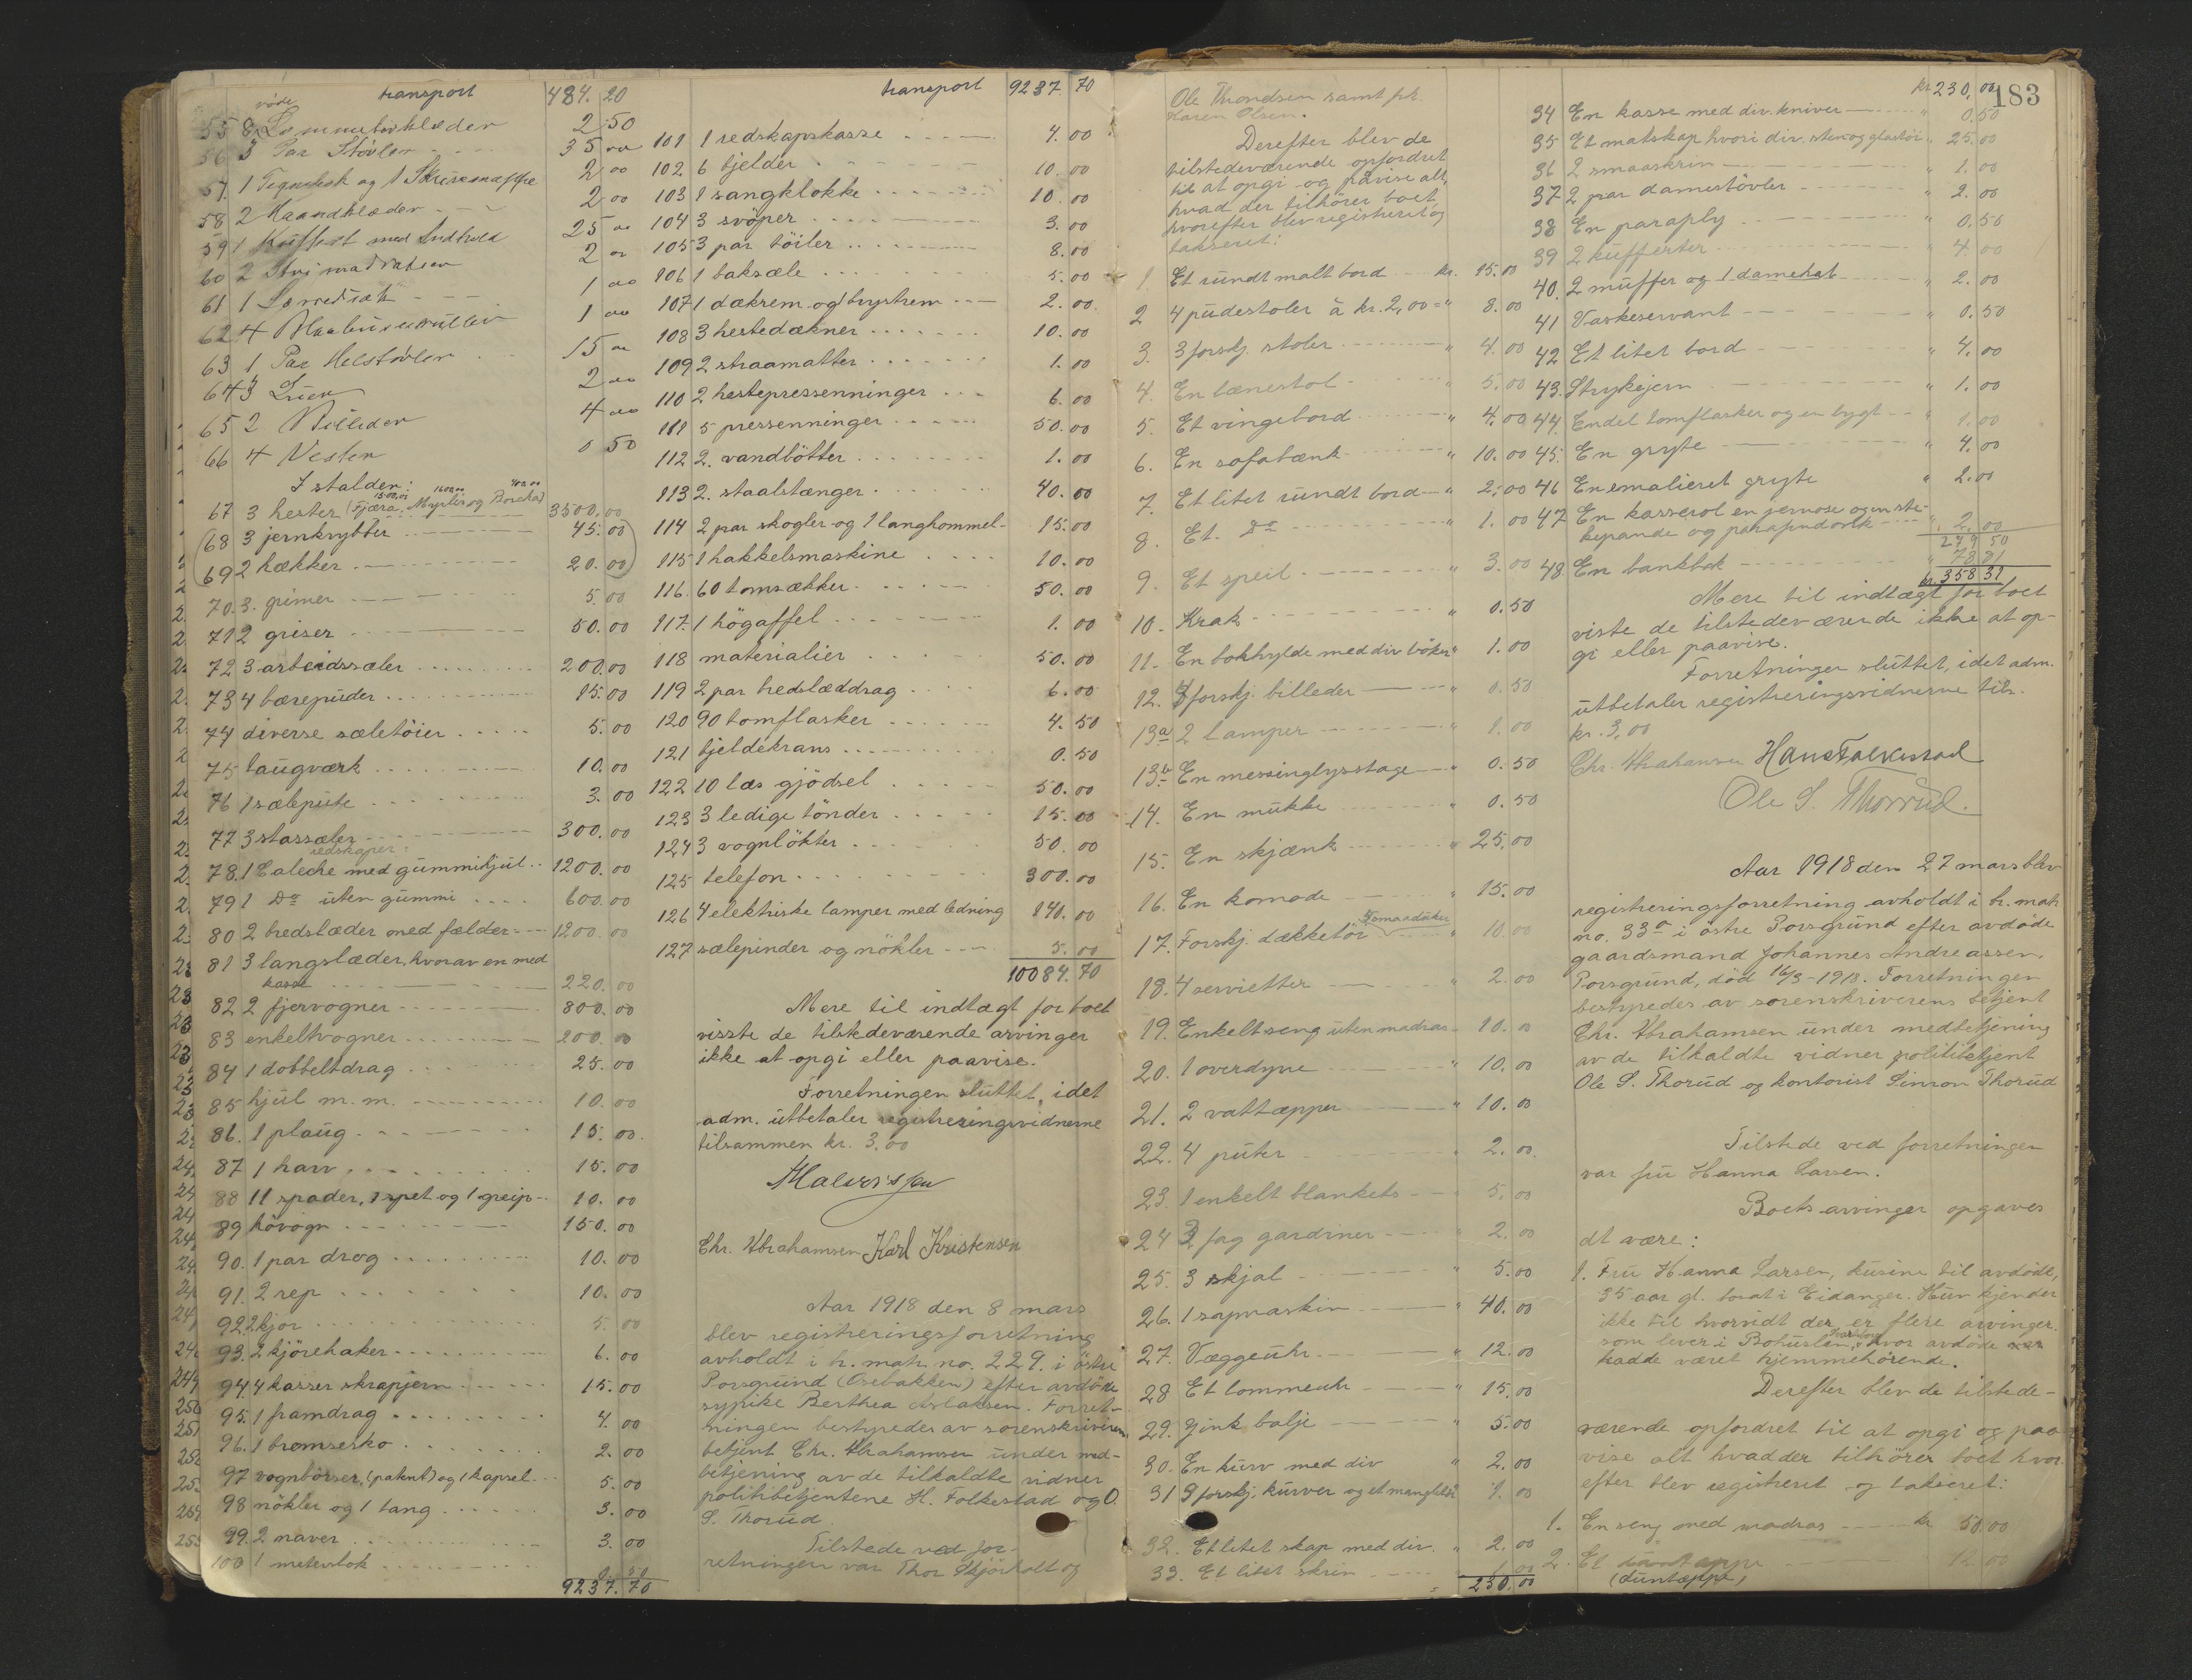 transport 484. 20
røde
55 8 Lommetørklæder 2 50
56 3 Par Støvler 35 00
57. 1 Tegnebok og 1 Skrivemappe 2 00
58 2 Haandklæder 2 00
59 1 Kuffert med Indhold 25 00
60 2 Strimadratser 2 00
61 1 1 00
62 4 1 00
63 1 Par Helstøvler 15 00
64 3 Luer 2 00
65 2 4 00
66 4 Vester 0 50
I stalden:
67 3 hester (Fjæra, Myrlis og Borcka) 3500.00
68 3 jernkrybber 45.00
69 2 hækker 20.00
70. 3. grimer 5.00
71 2 griser 50.00
72 3 arbeidssæler 200.00
73 4 bærepuder 15.00
74 diverse sæletøier 5.00
75 taugværk 10.00
76 1 sælepute 3.00
77 3 stassæler 300.00
redskaper:
78. 1 Caleche med gummihjul 1200.00
79 1 Do uten gummi 600.00
80 2 bredslæder med fælder 1200.00
81 3 langslæder, hvorav en med
kasse 220.00
82 2 fjervogner 800.00
83 enkeltvogner 200.00
84 1 dobbeltdrag 25.00
85 hjul m. m. 10.00
86. 1 plaug 15.00.
87 1 harv 15.00
88 11 spader, 1 spet og 1 greip 10.00
89 høvogn 150.00
90. 1 par drog 10.00
91. 2 rep 10.00
92. 2 kjør 5.00
93. 2 kjørehaker 6.00
94 4 kasser skrapjern 15.00
95. 1 framdrag 4.00
96. 1 bremsesko 2.00
97 vognbørser, (patent) og 1 kapsel 5.00
98 nøkler og 1 tang 3.00
99. 2 naver 3.00
100 1 metervlok 0.50
9237.70
transport 9237 70
101 1 redskapskasse 4.00
102 6 bjelder 10.00
103 1 sangklokke 10.00
104 3 svøper 3.00
105 3 par tøiler 8.00
106 1 baksæle 5.00
107 1 dækrem og 1 brystrem 2.00
108 3 hestedækner 10.00
109 2 straamatter 1.00
110 2 hestepressenninger 6.00
111 5 pressenninger 50.00
112 2. vandbøtter 1.00
113 2. staalstænger 40.00
114 2 par skogler og 1 langhommel 15.00
115 1 hakkelsmaskine 10.00
116. 60 tomsækker 50.00
117. 1 høgaffel 1.00
118 materialier 50.00
119 2 par bredslæddrag 6.00
120 90 tomflasker 4.50
121 bjeldekrans 0.50
122 10 læs gjødsel 50.00
123 3 ledige tønder 15.00
124 3 vognløkter 50.00
125 telefon 300.00
126 4 elektriske lamper med ledning 140.00
127 sælepinder og nøkler 5.00
10084.70
Mere til indtægt for boet
visste de tilstedeværende arvinger
ikke at opgi eller paavise.
Forretningen sluttet, idet
adm. utbetaler registreringsvidnerne
tilsammen kr. 3.00
Chr. Abrahamsen Karl Kristensen
Aar 1918 den 8 mars
blev registreringsforretning
avholdt i h. matr. no. 229. i østre
Porsgrund (Osebakken) efter avdøde
sypike Berthea Aslaksen. Forret-
ningen bestyredes av sorenskriverens
betjent Chr. Abrahamsen under med-
betjening av de tilkaldte vidner
politibetjentene H. Folkestad og O.
S. Thorud.
Tilstede ved for-
retningen var Thor Skjørholt og
183
Ole Throndsen samt frk.
Karen Olsen.
Derefter blev de
tilstedeværende opfordret
til at opgi og påvise alt,
hvad der tilhører boet,
hvorefter blev registreret og
takseret:
1. Et rundt malt bord kr. 15.00
2 4 pudestoler à kr. 2,00 = " 8.00
3. 3 forskj. stoler " 4.00
4. En lænestol " 5.00
5. Et vingebord " 4.00
6. En sofabænk " 10.00
7. Et litet rundt bord " 2.00
8. Et. Do " 1.00
9. Et speil " 3.00
10. Krak " 0.50
11. En bokhylde med div bøker " 1.00
12. 4 forskj. billeder " 0.50
13a 2 lamper " 1.00
13b En messinglysstage " 0.50
14. En mukke " 0.50
15. En skjænk " 25.00
16. En komode " 15.00
17. Forskj. dækketøi " 10.00
18. 4 servietter " 2.00
19. Enkeltseng uten madras " 10.00
20. 1 overdyne " 10.00
21. 2 vattæpper " 10.00
22. 4 puter 2.00
23. 1 enkelt blankets " 5.00
24 2 fag gardiner " 2.00
25. 3 skjal " 5.00
26. 1 symaskin " 40.00
27. Væggeuhr " 12.00
28 Et lommeuhr " 15.00
29. Zink balje " 5.00
30. En kurv med div " 2.00
31 9 forskj. kurver og et mangletræ 1.00
32. Et litet skap med div. " 2.00
33. Et litet skrin 1.00
230.00
kr. 230,00
34 En kasse med div. kniver " 0.50
35 Et matskap hvori div. sten og glastøi " 25.00
36 2 smaaskrin " 1.00
37 2 par damestøvler " 2.00
38 En paraply " 0.50
39 2 kufferter " 4.00
40. 2 muffer og 1 damehat " 2.00
41 Vaskeservant " 0.50
42 Et litet bord " 4.00
43. Strykejern " 1.00
44. Endel tomflasker og en lygt " 1.00
45. En gryte " 4.00
46 En emalieret gryte " 2.00
47 En kasserol en jernose og en ste-
kepande og parafindunk " 2.00
279 50
48. En bankbok " 78 81
kr. 358 31
Mere til indtægt for boet
viste de tilstedeværende ikke at op-
gi eller paavise.
Forretningen sluttet, idet adm.
utbetaler registreringsvidnerne tils.
kr. 3.00
Chr. Abrahamsen Hans Folkestad
Ole S. Thorrud.
Aar 1918 den 27 mars blev
registreringsforretning avholdt i h. matr.
no. 33a i østre Porsgrund efter avdøde
gaardsmand Johannes Andreassen,
Porsgrund, død 16/3-1918. Forretningen
bestyredes av sorenskriverens betjent
Chr. Abrahamsen under medbetjening
av de tilkaldte vidner politibetjent
Ole S. Thorud og kontorist Simon Thorud
Tilstede ved forretningen
var fru Hanna Larsen.
Boets arvinger opgaves
at være:
1. Fru Hanna Larsen, kusine til avdøde,
35 aar gl. bosat i Eidanger. Hun kjender
ikke til hvorvidt der er flere arvinger
som lever i Bohuslen, hvor avdøde
hadde været hjemmehørende.
Derefter blev de tilstede-
værende opfordret til at opgi og paa-
vise alt hvad der tilhører boet hvor-
efter blev registreret og takseret:
1. En seng med madras kr 50.00
2. Et 12.00
(duntæppe)